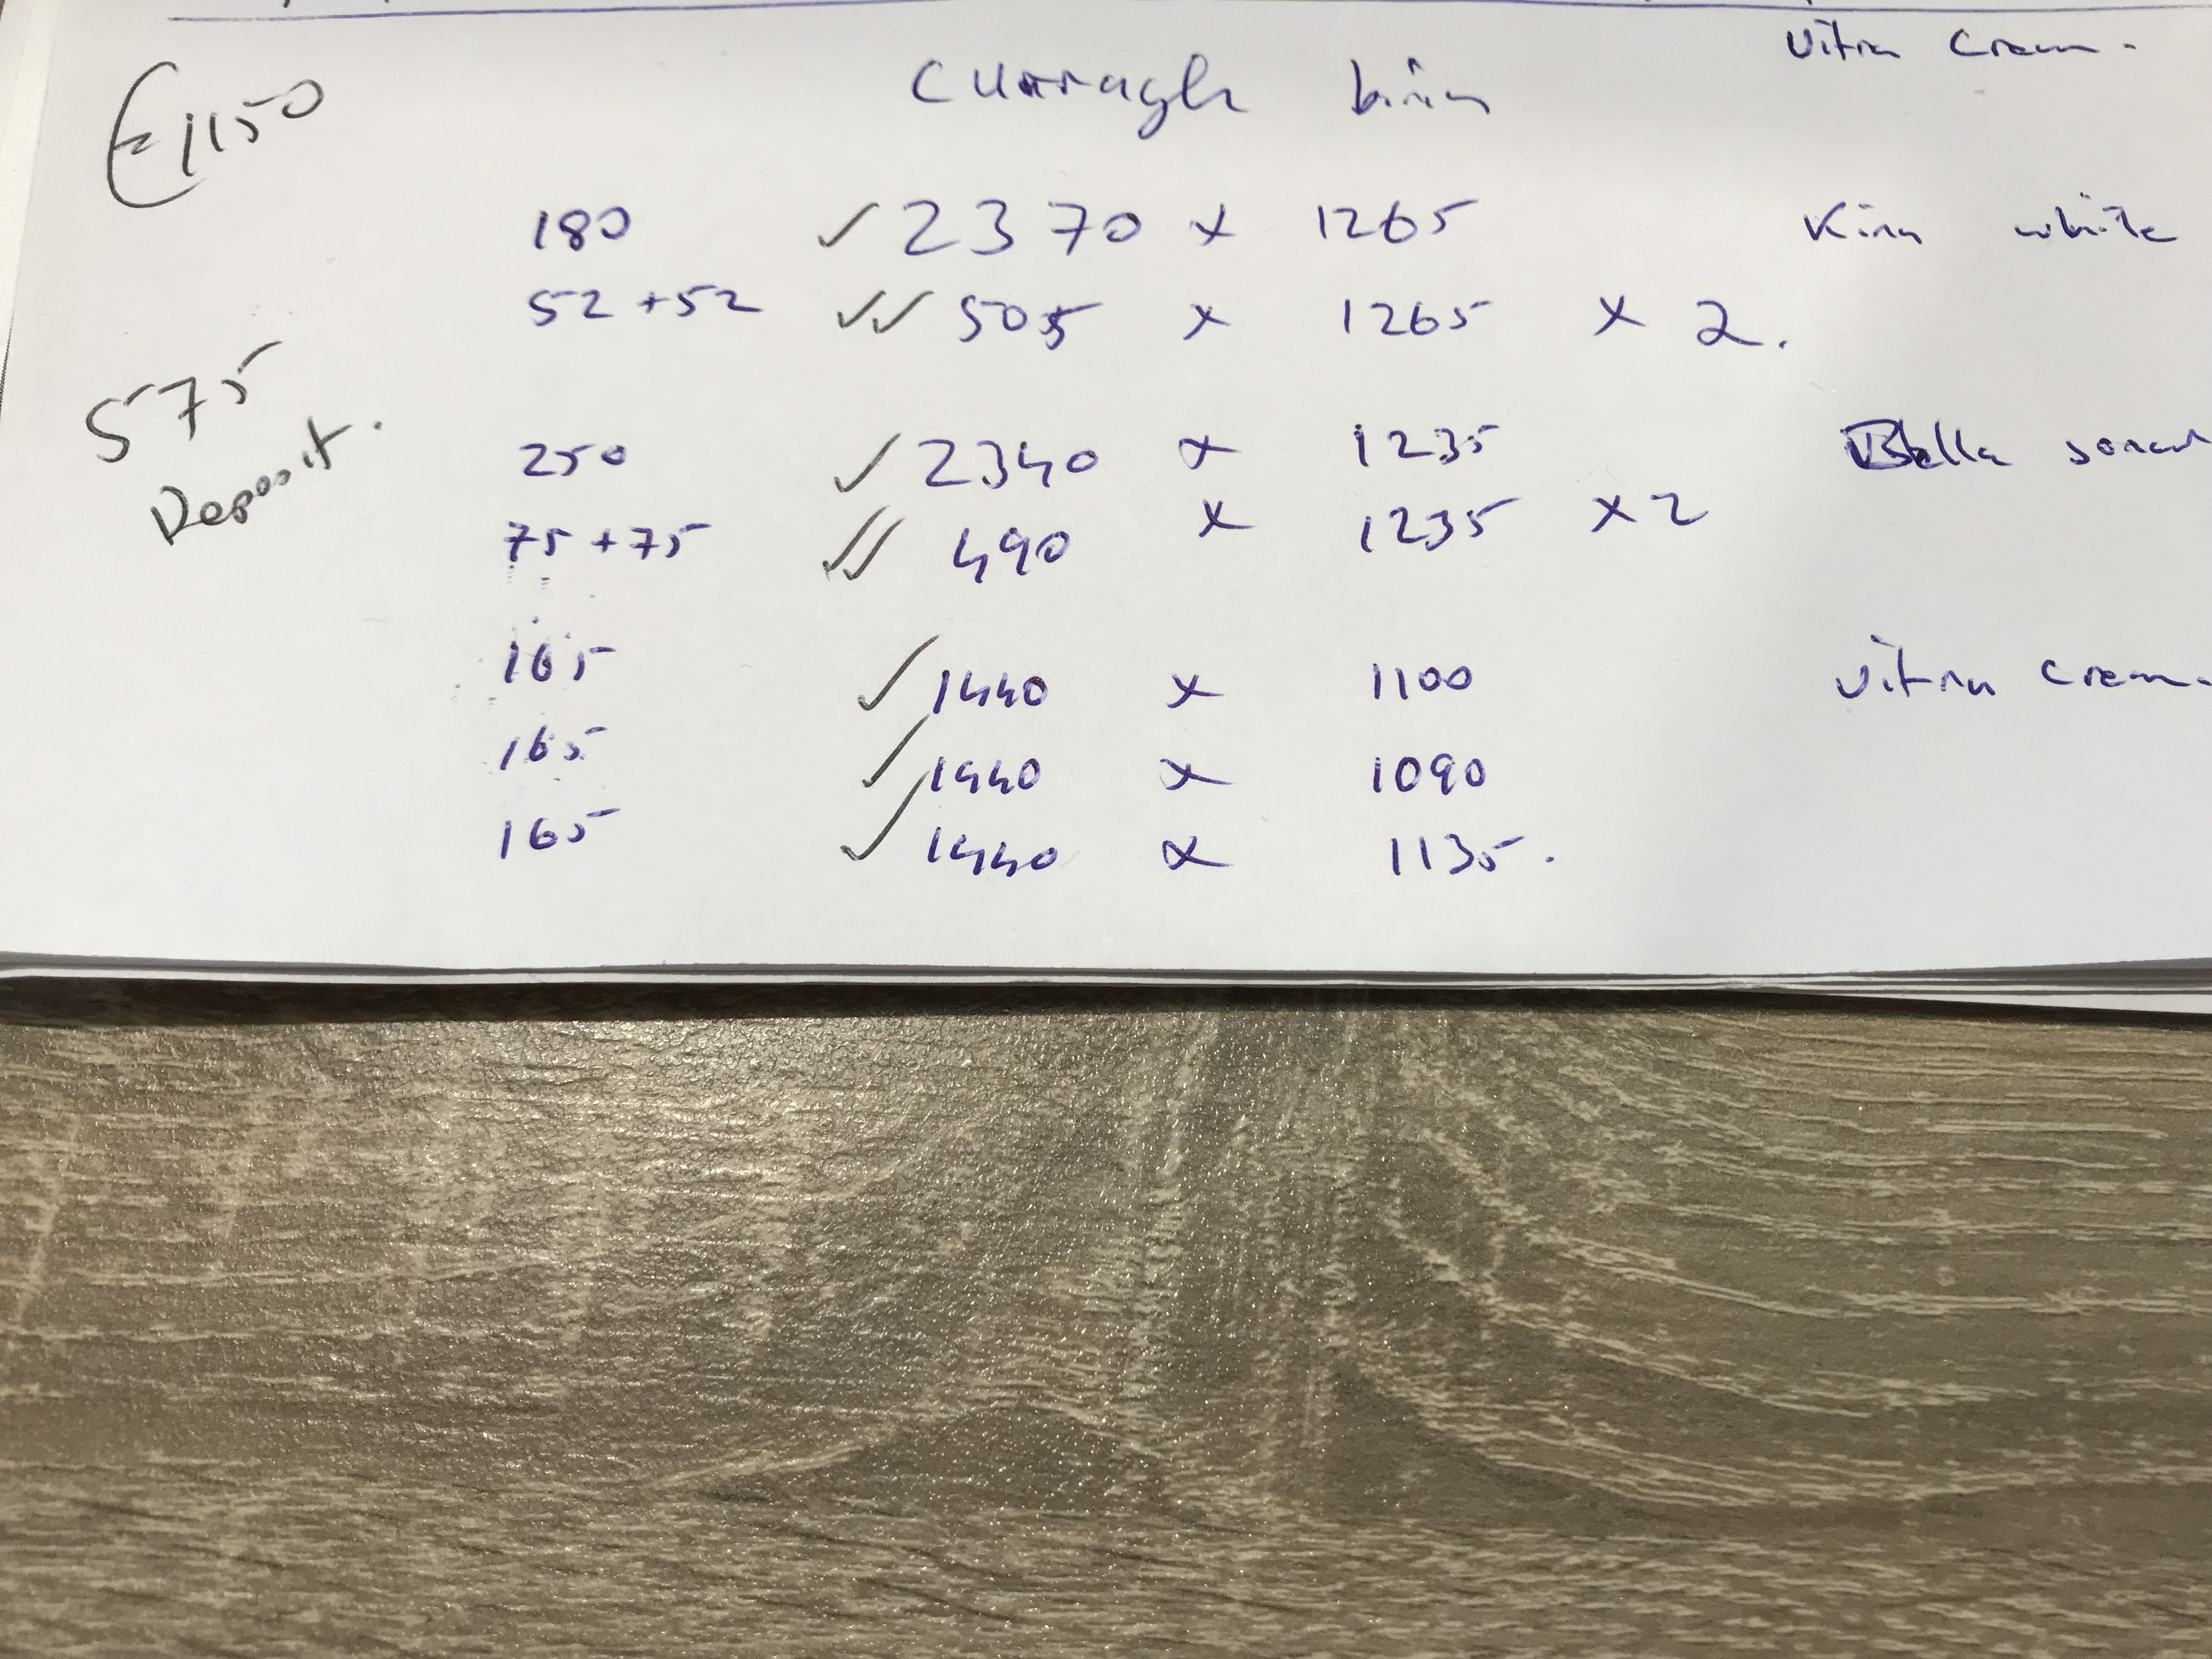 Vitra Cream.
€1150
Curragh birin
180 ✓ 2370 x 1265 Kira white
52 + 52 ✓✓ 505 x 1265 x 2.
575
Deposit.
250 ✓ 2340 x 1235 Bella sonar
75 + 75 ✓✓ 490 x 1235 x 2
165 ✓ 1440 x 1100 Vitra Cream.
165 ✓ 1440 x 1090
165 ✓ 1440 x 1135.